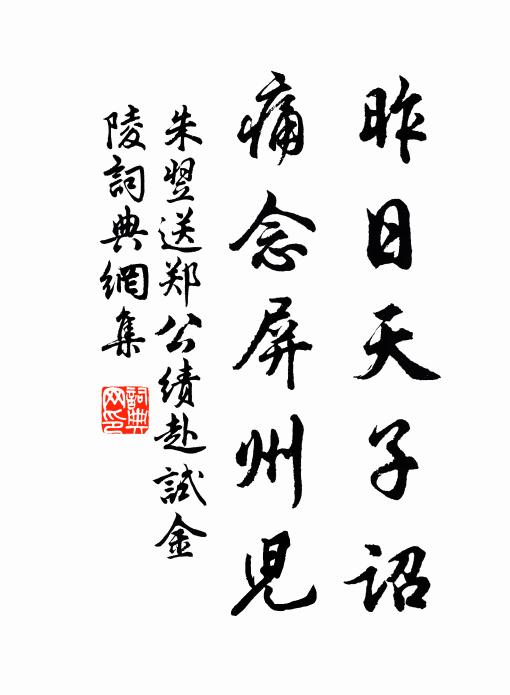 昨日天子詔
痛念屏州兒
朱翌送郑公績赴試金
陵詞典網集
詞典
网印